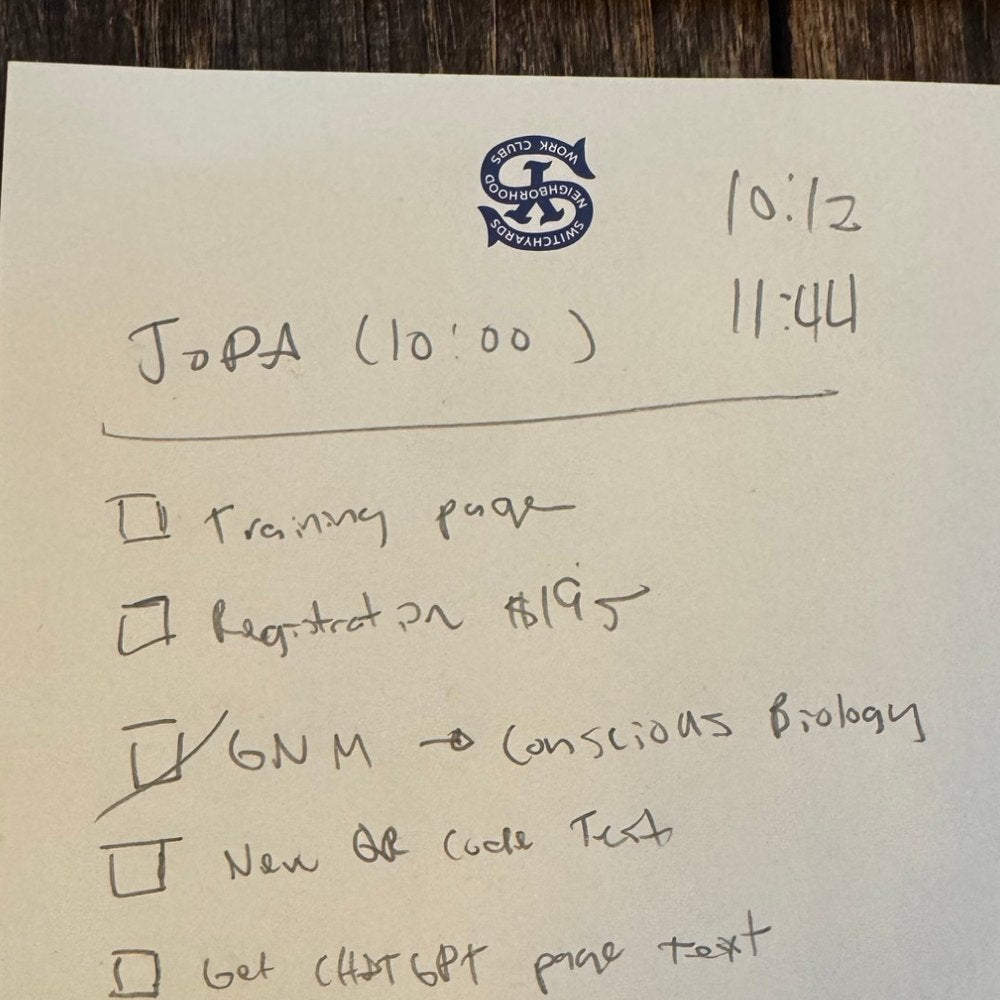 SWITCHYARDS
NEIGHBORHOOD
WORK CLUBS
10:12
11:44
JoPA (10:00)
Training page
Registration $195
GNM → Conscious Biology
New QR Code Text
Get CHATGPT page text